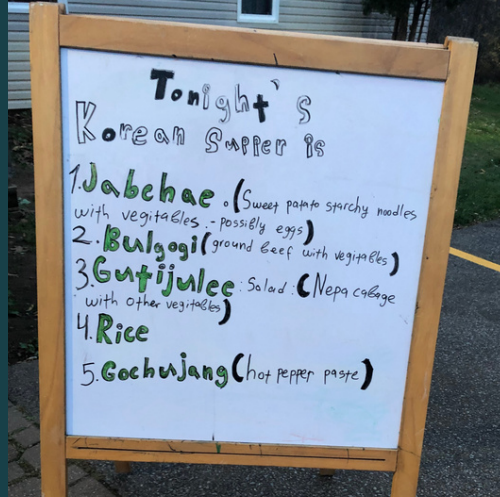 Tonight's
Korean Supper is
1. Jabchae. (Sweet potato starchy noodles
with vegitables. - possibly eggs)
2. Bulgogi (ground beef with vegitables)
3. Gutijulee: Salad: (Nepa cabage
with other vegitables)
4. Rice
5. Gochujang (hot pepper paste)